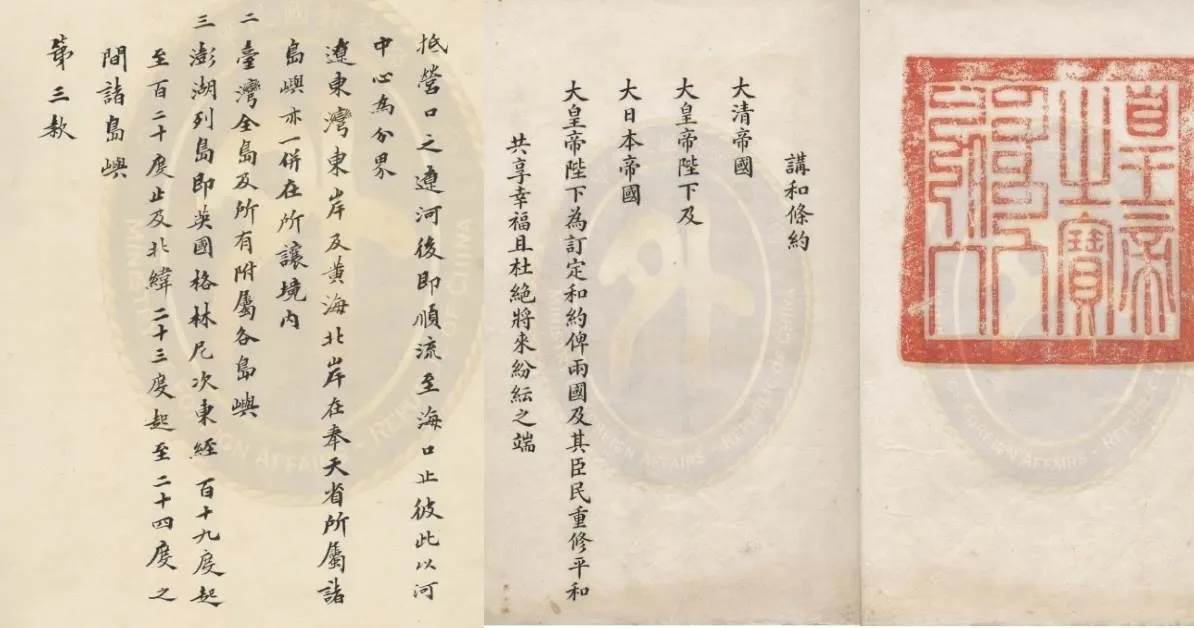 皇帝
之寶
講和條約
大清帝國
大皇帝陛下及
大日本帝國
大皇帝陛下為訂定和約俾兩國及其臣民重修平和
共享幸福且杜絕將來紛紜之端
抵營口之遼河後即順流至海口止彼此以河
中心為分界
遼東灣東岸及黃海北岸在奉天省所屬諸
島嶼亦一併在所讓境內
二臺灣全島及所有附屬各島嶼
三澎湖列島即英國格林尼次東經百十九度起
至百二十度止及北緯二十三度起至二十四度之
間諸島嶼
第三款
FOREIGN AFFAIRS
REPUBLIC OF CHINA